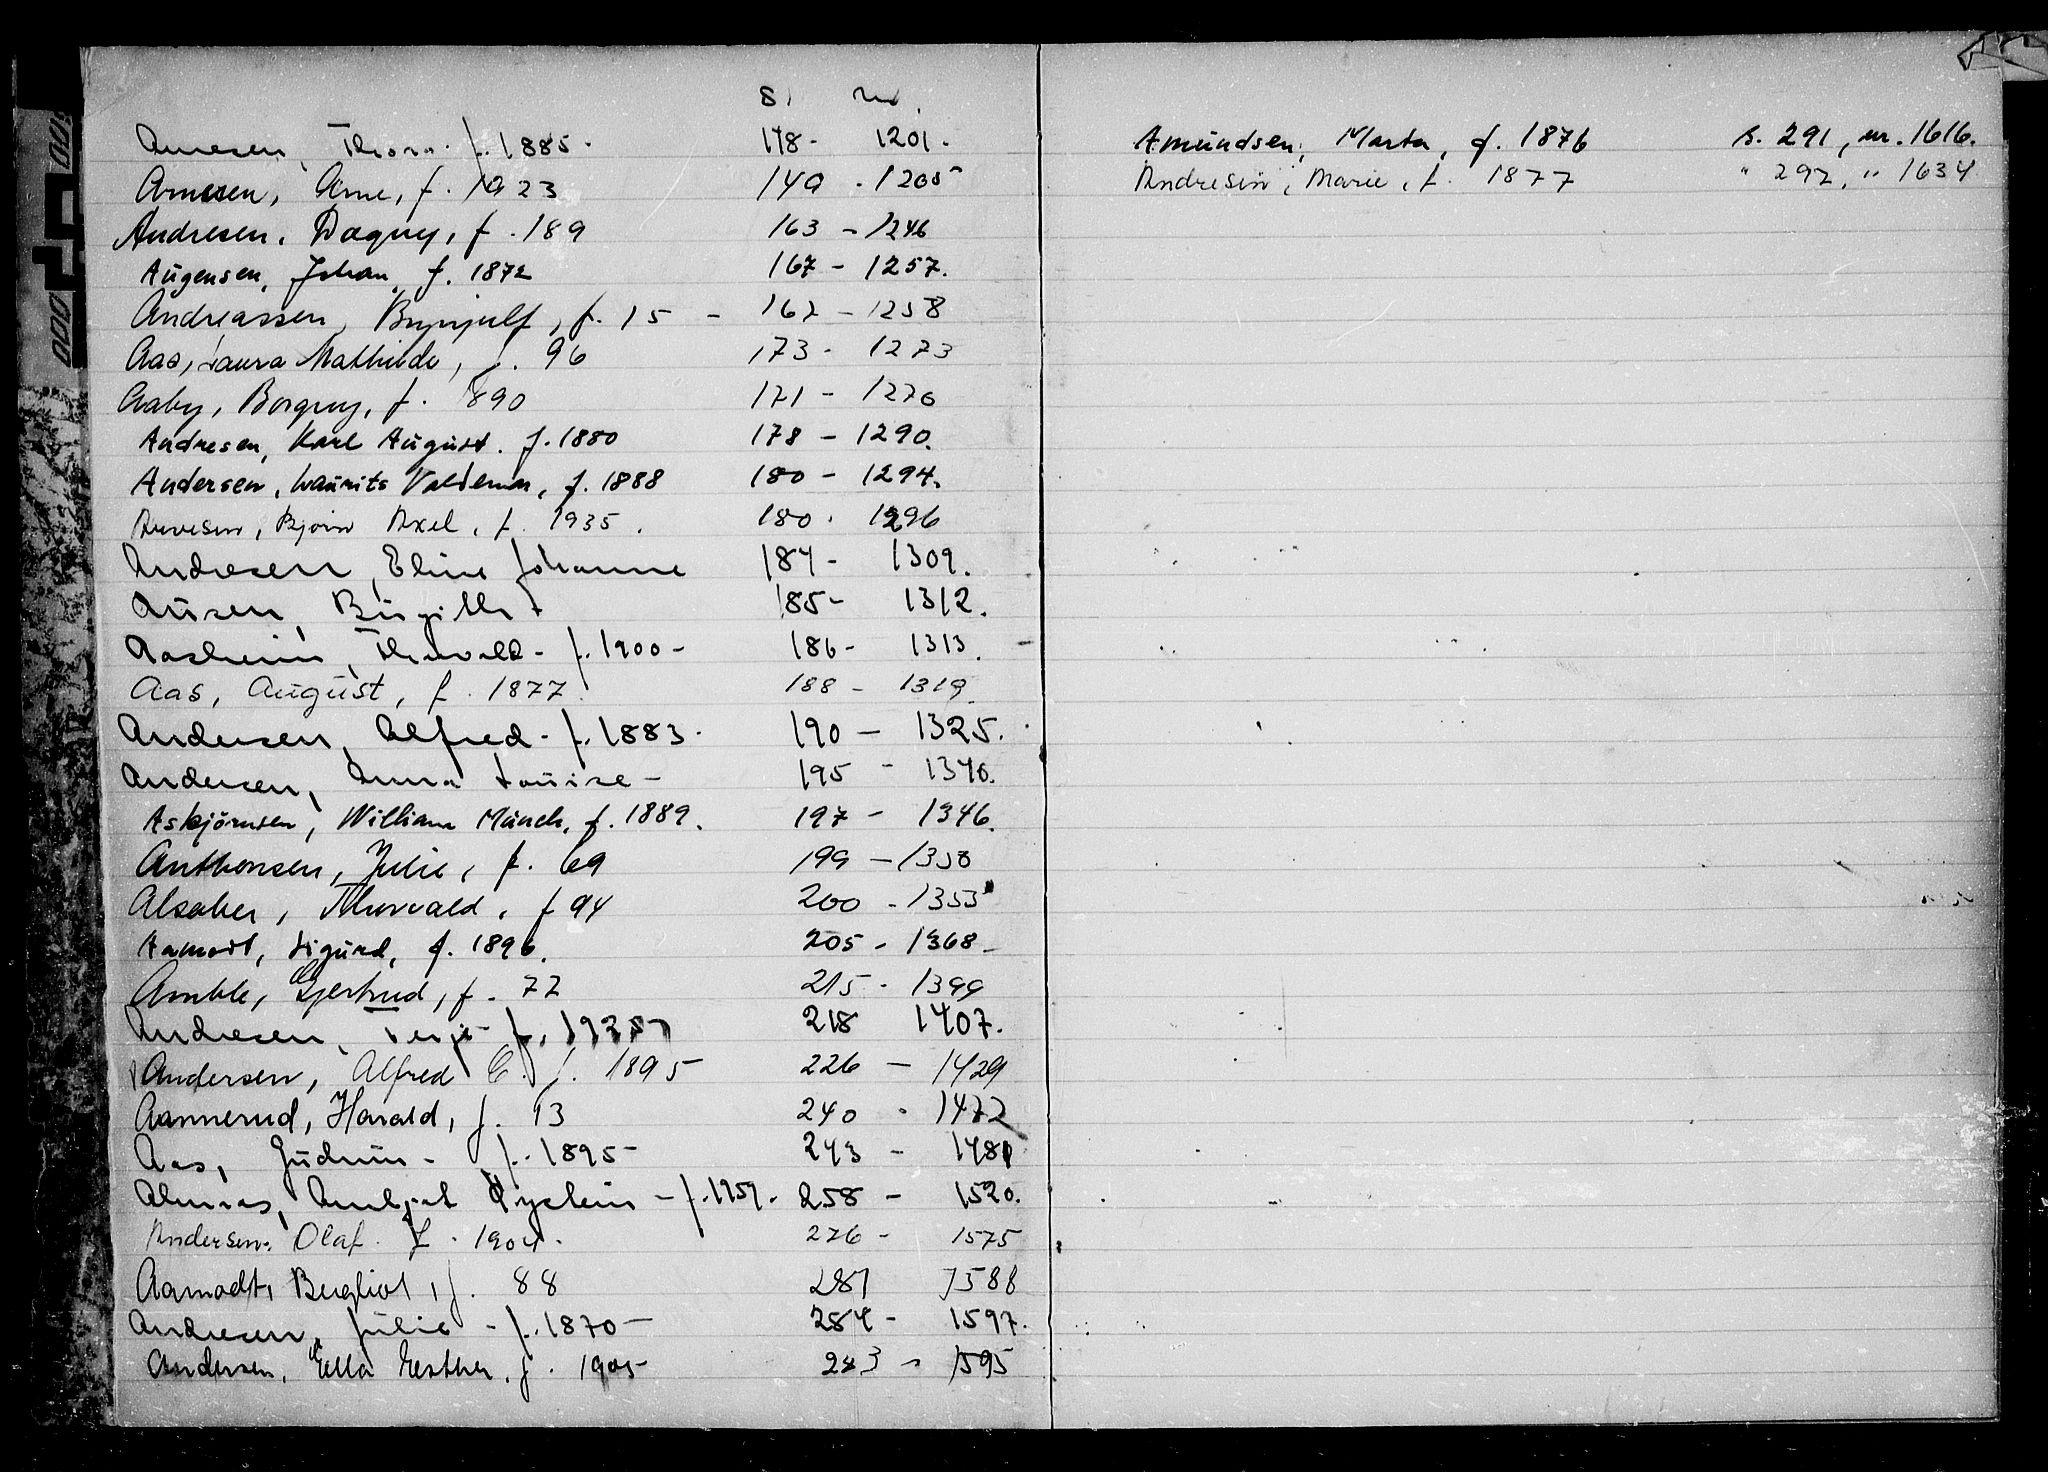 S. nr.
Arnesen, Thora f. 1885. 148- 1201.
Arnesen, Arne, f. 1923 149 - 1205
Andresen, Dagny, f. 189 163 - 1246
Augensen, Johan, f. 1872 167 - 1257.
Andreassen, Brynjulf, f. 15 - 167 - 1258
Aas, Laura Mathilde, f. 96 173 - 1273
Aaby, Borgny, f. 890 171 - 1270
Andresen, Karl August. f. 1880 178 - 1290.
Andersen, Laurits Valdemar, f. 1888 180 - 1294.
Arnesen, Bjørn Axel, f. 1935. 180. 1296
Andresen, Eline Johanne 184- 1309.
185- 1312.
Aasheim, Thorvald - f. 1900 - 186- 1313.
Aas, August, f. 1877. 188 - 1319.
Andersen, Alfred - f. 1883. 190 - 1325.
Andersen, Anna Louise - 195 - 1340.
Asbjørnsen, William Münch, f. 1889. 197 - 1346.
Anthonsen, Julie, f. 69 199 - 1350
Alsaker, Thorvald, f 94 200 - 1353
Aamodt, Sigurd, f. 1896. 205 - 1368 -
Amble, Gjertrud, f. 72 215 - 1399
Andresen, Terje f. 218 1407.
Andersen, Alfred C. f. 1895 226 - 1429
Aannerud, Harald, f. 13 240 - 1472
Aas, Gudrun - f. 1895 - 243 - 1481
Øystein - f. 1959. 258 - 1520.
Andersen, Olaf. f. 1904. 276 - 1575
Aamodt, Bergliot, f. 88 281 1588
Andresen, Julie - f. 1870 - 284 - 1597.
Andersen, Ella Esther. f. 1905 - 283 - 1595
Amundsen, Marta, f. 1876 s. 291, nr. 1616.
Andresen, Marie, f. 1877 " 297, " 1634